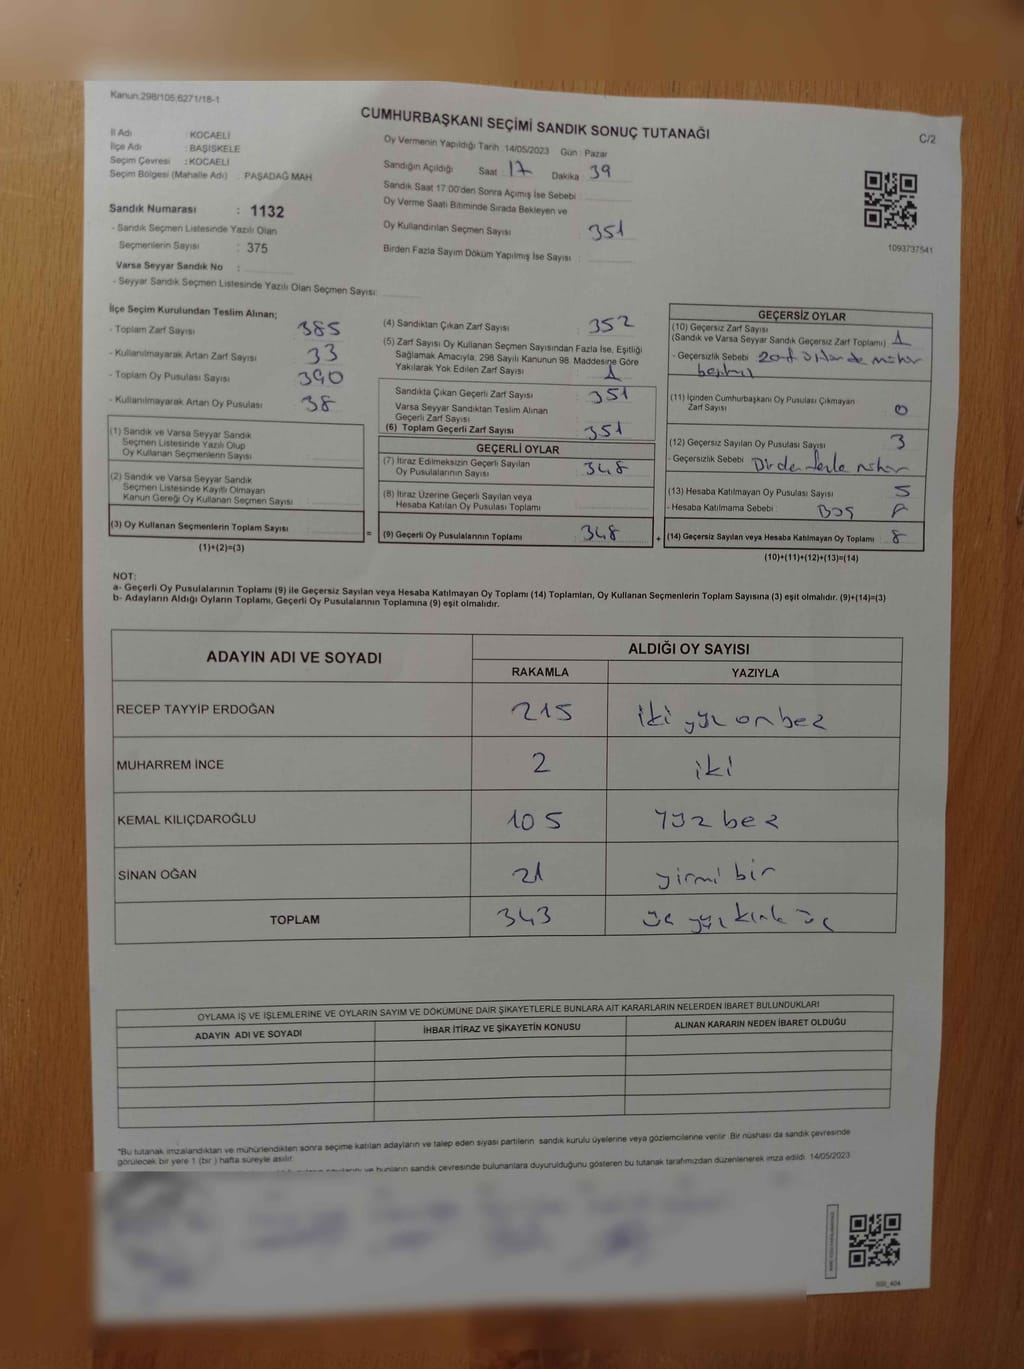 Kanun:298/105;6271/18-1
CUMHURBAŞKANI SEÇİMİ SANDIK SONUÇ TUTANAĞI
C/2
İl Adı : KOCAELİ
İlçe Adı : BAŞİSKELE
Seçim Çevresi : KOCAELİ
Seçim Bölgesi (Mahalle Adı) : PAŞADAĞ MAH.
Sandık Numarası : 1132
- Sandık Seçmen Listesinde Yazılı Olan
Seçmenlerin Sayısı : 375
Varsa Seyyar Sandık No :
- Seyyar Sandık Seçmen Listesinde Yazılı Olan Seçmen Sayısı:
Oy Vermenin Yapıldığı Tarih :14/05/2023 Gün : Pazar
Sandığın Açıldığı Saat 17 Dakika 39
Sandık Saat 17:00'den Sonra Açımış İse Sebebi
Oy Verme Saati Bitiminde Sırada Bekleyen ve
Oy Kullandırılan Seçmen Sayısı 351
Birden Fazla Sayım Döküm Yapılmış İse Sayısı :
1093737541
İlçe Seçim Kurulundan Teslim Alınan;
- Toplam Zarf Sayısı 385
- Kullanılmayarak Artan Zarf Sayısı 33
- Toplam Oy Pusulası Sayısı 390
- Kullanılmayarak Artan Oy Pusulası 38
(1) Sandık ve Varsa Seyyar Sandık
Seçmen Listesinde Yazılı Olup
Oy Kullanan Seçmenlerin Sayısı
(2) Sandık ve Varsa Seyyar Sandık
Seçmen Listesinde Kayıtlı Olmayan
Kanun Gereği Oy Kullanan Seçmen Sayısı :
(3) Oy Kullanan Seçmenlerin Toplam Sayısı
(1)+(2)=(3)
=
(4) Sandıktan Çıkan Zarf Sayısı : 352
(5) Zarf Sayısı Oy Kullanan Seçmen Sayısından Fazla İse, Eşitliği
Sağlamak Amacıyla, 298 Sayılı Kanunun 98. Maddesine Göre
Yakılarak Yok Edilen Zarf Sayısı : 1
Sandıkta Çıkan Geçerli Zarf Sayısı : 351
Varsa Seyyar Sandıktan Teslim Alınan
Geçerli Zarf Sayısı
(6) Toplam Geçerli Zarf Sayısı : 351
GEÇERLİ OYLAR
(7) İtiraz Edilmeksizin Geçerli Sayılan
Oy Pusulalarının Sayısı : 348
(8) İtiraz Üzerine Geçerli Sayılan veya
Hesaba Katılan Oy Pusulası Toplamı
(9) Geçerli Oy Pusulalarının Toplamı : 348
+
GEÇERSİZ OYLAR
(10) Geçersiz Zarf Sayısı
(Sandık ve Varsa Seyyar Sandık Geçersiz Zarf Toplamı) : 1
- Geçersizlik Sebebi
(11) İçinden Cumhurbaşkanı Oy Pusulası Çıkmayan
Zarf Sayısı : 0
(12) Geçersiz Sayılan Oy Pusulası Sayısı : 3
- Geçersizlik Sebebi :
(13) Hesaba Katılmayan Oy Pusulası Sayısı : 5
- Hesaba Katılmama Sebebi : BOŞ
(14) Geçersiz Sayılan veya Hesaba Katılmayan Oy Toplamı : 8
(10)+(11)+(12)+(13)=(14)
NOT:
a- Geçerli Oy Pusulalarının Toplamı (9) ile Geçersiz Sayılan veya Hesaba Katılmayan Oy Toplamı (14) Toplamları, Oy Kullanan Seçmenlerin Toplam Sayısına (3) eşit olmalıdır. (9)+(14)=(3)
b- Adayların Aldığı Oyların Toplamı, Geçerli Oy Pusulalarının Toplamına (9) eşit olmalıdır.
ADAYIN ADI VE SOYADI ALDIĞI OY SAYISI
RAKAMLA YAZIYLA
RECEP TAYYİP ERDOĞAN 215 iki yüz on beş
MUHARREM İNCE 2 iki
KEMAL KILIÇDAROĞLU 105 yüz beş
SİNAN OĞAN 21 yirmi bir
TOPLAM 343 üç yüz kırk üç
OYLAMA İŞ VE İŞLEMLERİNE VE OYLARIN SAYIM VE DÖKÜMÜNE DAİR ŞİKAYETLERLE BUNLARA AİT KARARLARIN NELERDEN İBARET BULUNDUKLARI
ADAYIN ADI VE SOYADI İHBAR İTİRAZ VE ŞİKAYETİN KONUSU ALINAN KARARIN NEDEN İBARET OLDUĞU
*Bu tutanak imzalandıktan ve mühürlendikten sonra seçime katılan adayların ve talep eden siyasi partilerin sandık kurulu üyelerine veya gözlemcilerine verilir. Bir nüshası da sandık çevresinde
görülecek bir yere 1 (bir ) hafta süreyle asılır.
ve bunların sandık çevresinde bulunanlara duyurulduğunu gösteren bu tutanak tarafımızdan düzenlenerek imza edildi. 14/05/2023